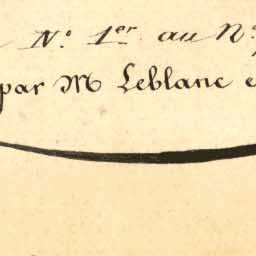 N.o 1.er au N.o
par M Leblanc e